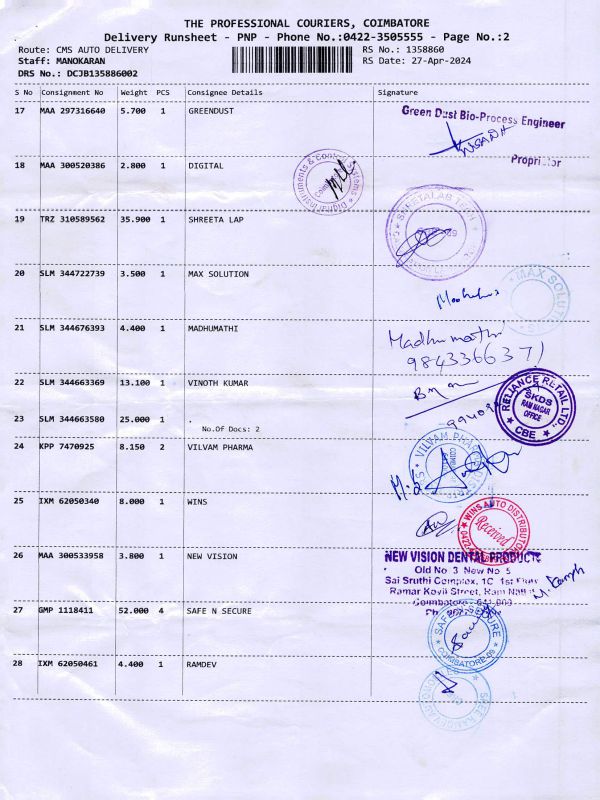 THE PROFESSIONAL COURIERS, COIMBATORE
Delivery Runsheet - PNP - Phone No.:0422-3505555 - Page No.:2
Route: CMS AUTO DELIVERY RS No.: 1358860
Staff: MANOKARAN RS Date: 27-Apr-2024
DRS No.: DCJB135886002
S No Consignment No Weight PCS Consignee Details Signature
17 MAA 297316640 5.700 1 GREENDUST
Green Dust Bio-Process Engineer
Proprietor
18 MAA 300520386 2.800 1 DIGITAL
Digital Instruments & Control Systems
19 TRZ 310589562 35.900 1 SHREETA LAP
20 SLM 344722739 3.500 1 MAX SOLUTION
MAX SOLUTI
21 SLM 344676393 4.400 1 MADHUMATHI
Madhumathi
9843366371
22 SLM 344663369 13.100 1 VINOTH KUMAR
RELIANCE RETAIL LTD.,
SKDS
RAM NAGAR
OFFICE
CBE
23 SLM 344663580 25.000 1 .
No.Of Docs: 2
24 KPP 7470925 8.150 2 VILVAM PHARMA
VILVAM PHAR
25 IXM 62050340 8.000 1 WINS
WINS AUTO DISTRIBUTOR
Received
26 MAA 300533958 3.800 1 NEW VISION
NEW VISION DENTAL PRODUCTS
Old No 3 New No 5
Sai Sruthi Complex, 1C 1st Floor
Ramar Kovil Street, Ram Nagar
Coimbatore - 641 009
27 GMP 1118411 52.000 4 SAFE N SECURE
SAFE N SECURE
COIMBATORE-09
28 IXM 62050461 4.400 1 RAMDEV